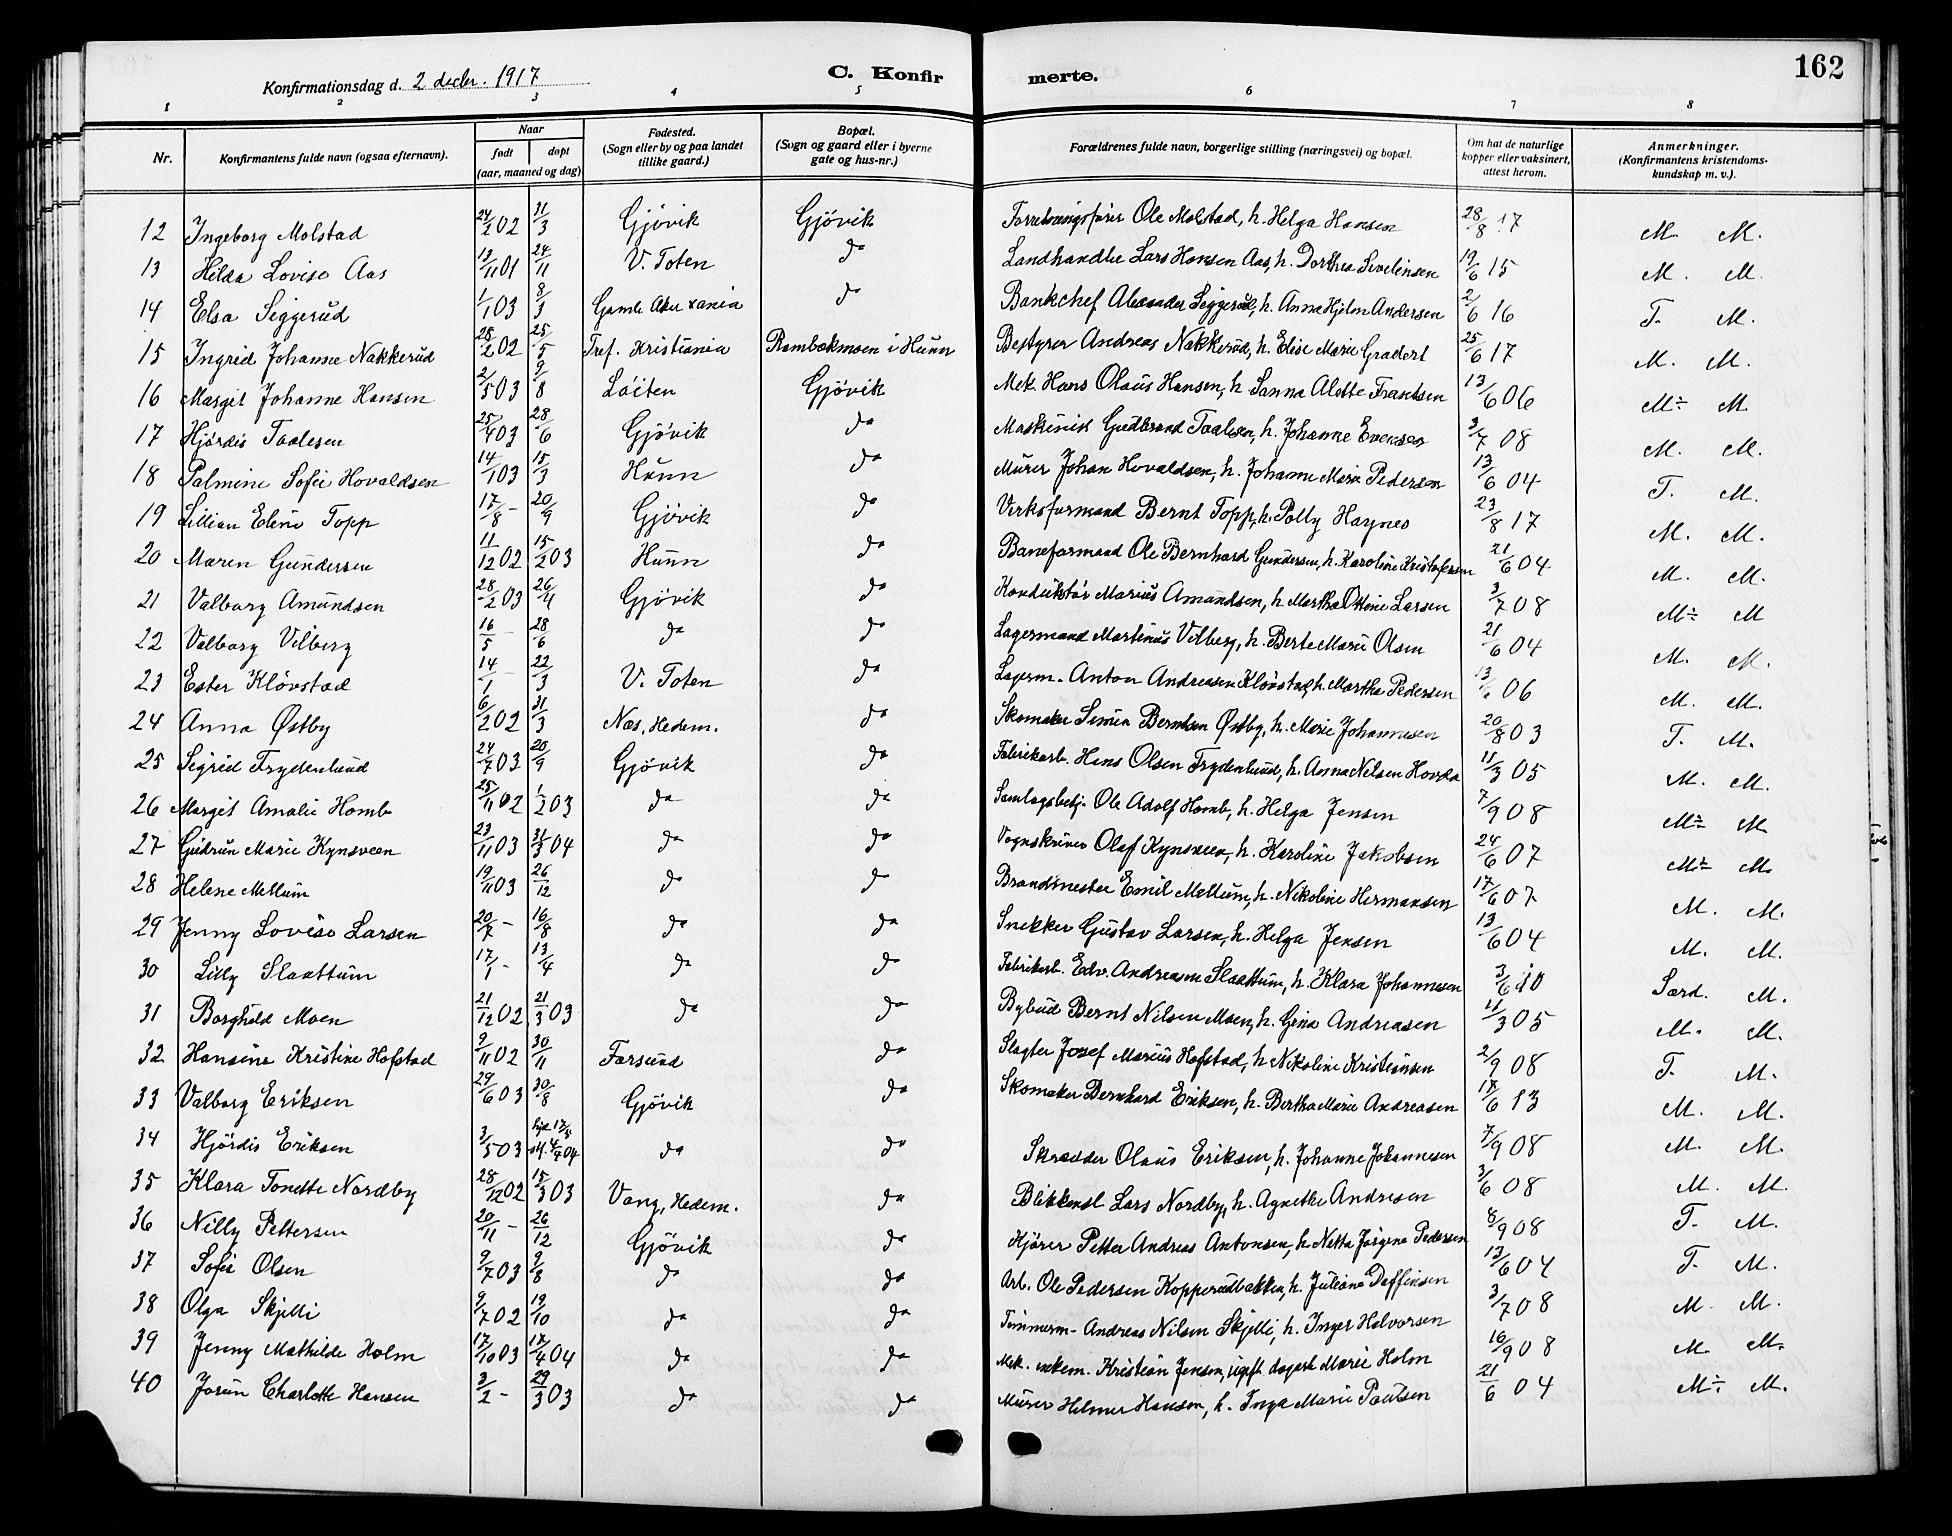 162
Konfirmationsdag d. 2 decbr. 1917 C. Konfirmerte.
1 2 3 4 5 6 7 8
Nr. Konfirmantens fulde navn (ogsaa efternavn). Naar født døpt (aar, maaned og dag) Fødested. (Sogn eller by og paa landet tillike gaard.) Bopæl. (Sogn og gaard eller i byerne gate og hus-nr.) Forældrenes fulde navn, borgerlige stilling (næringsvei) og bopæl. Om hat de naturlige kopper eller vaksinert, attest herom. Anmerkninger. (Konfirmantens kristendoms-kundskap m. v.).
12 Ingeborg Molstad 24/2 02 31/3 Gjövik Gjövik Forretningsfører Ole Molstad, h. Helga Hansen 28/8 17 M. M.
13 Helda Lovise Aas 13/11 01 24/11 V. Toten do Landhandler Lars Hansen Aas, h. Dorthea Sivelinsen 19/6 15 M. M.
14 Elsa Seggerud 1/1 03 8/3 Gamle Aker xania do Bankchef Alexander Seggerud, h. Anna Hjelm Andersen 2/6 16 T. M.
15 Ingrid Johanne Nakkerud 28/2 02 25/5 Tref. Kristiania Rambækmoen i Hunn Bestyrer Andreas Nakkerud, h. Elise Marie Gradert 25/6 17 M. M.
16 Margit Johanne Hansen 2/5 03 9/8 Löiten Gjövik Mek. Hans Olaus Hansen, h. Sanna Alette Frantsen 13/6 06 M÷ M.
17 Hjördis Taalesen 25/4 03 28/6 Gjövik do Maskinist Gudbrand Taalesen, h. Johanne Evensen 3/7 08 M. M.
18 Palmine Sofie Hovaldsen 14/1 03 15/3 Hunn do Murer Johan Hovaldsen, h. Johanne Marie Pedersen 13/6 04 T. M.
19 Lillian Eline Topp 17/8 - 20/9 Gjövik do Verksformand Bernt Topp, h. Polly Haynes 23/8 17 M. M.
20 Maren Gundersen 11/12 02 15/2 03 Hunn do Baneformand Ole Bernhard Gundersen, h. Karoline Kristofersen 21/6 04 M. M.
21 Valborg Amundsen 28/2 03 26/4 Gjövik do Konduktör Marius Amundsen, h. Martha Ottine Larsen 3/7 08 M÷ M
22 Valborg Vilberg 16/5 - 28/6 do do Lagermand Martinus Vilberg, h. Berte Marie Olsen 21/6 04 M. M.
23 Ester Klövstad 14/1 - 22/3 V. Toten do Lagerm. Anton Andreasen Klövstad, h. Martha Pedersen 13/6 06 M. M.
24 Anna Østby 6/2 02 31/3 Næs, Hedem. do Skomaker Simen Berntsen Østby, h. Marie Johannesen 20/8 03 T. M.
25 Sigrid Frydenlund 24/7 03 20/9 Gjövik do Fabrikarb. Hans Olsen Frydenlund, h. Anna Nilsen Hovda 11/3 05 M. M.
26 Margit Amalie Homb 25/11 02 1/2 03 do do Samlagsbetj. Ole Adolf Homb, h. Helga Jensen 7/9 08 M÷ M
27 Gudrun Marie Kynsveen 23/11 03 31/3 04 do do Vognskriver Olaf Kynsveen, h. Karoline Jakobsen 24/6 07 M÷ M.
28 Helene Mellum 19/11 03 26/12 do do Brandmester Emil Mellum, h. Nikoline Hermansen 17/6 07 M. M.
29 Jenny Lovise Larsen 20/7 - 16/8 do do Snekker Gustav Larsen, h. Helga Jensen 13/6 04 M. M.
30 Lilly Slaattum 17/1 - 13/4 do do Fabrikarb. Edv. Andreasen Slaattum, h. Klara Johannesen 3/6 10 Særd. M.
31 Borghild Moen 21/12 02 21/3 03 do do Bybud Bernt Nilsen Moen, h. Gina Andreasen 11/3 05 M. M.
32 Hansine Kristine Hofstad 9/11 02 30/11 Farsund do Slagter Josef Marius Hofstad, h. Nikoline Kristiansen 2/9 08 T. M.
33 Valborg Eriksen 29/6 03 30/8 Gjövik do Skomaker Bernhard Eriksen, h. Bertha Marie Andreasen 17/6 13 M. M.
34 Hjördis Eriksen 3/5 03 17/5 4/4 04 do do Skrædder Olaus Eriksen, h. Johanne Johannesen 7/9 08 M. M.
35 Klara Tonette Nordby 28/12 02 15/3 03 Vang, Hedem. do Blikkensl Lars Nordby, h. Agnethe Andresen 3/6 08 M. M.
36 Nilly Pettersen 20/11 - 26/12 Gjövik do Kjörer Petter Andreas Antonsen, h. Netta Jörgine Pedersen 8/9 08 T. M.
37 Sofie Olsen 9/7 03 9/8 do do Arb. Ole Pedersen Kopperudbakken, h. Juliane Daffinsen 13/6 04 T. M.
38 Olga Skjelli 9/7 02 19/10 do do Tömmerm. Andreas Nilsen Skjelli, h. Inger Halvorsen 3/7 08 M. M.
39 Jenny Mathilde Holm 17/10 03 17/4 04 do do Mek. Kristian Jensen, ugift Marie Holm 16/9 08 M. M.
40 Jorun Charlotte Hansen 3/2 - 29/3 03 do do Murer Helmer Hansen, h. Inga Marie Paulsen 21/6 04 M÷ M.